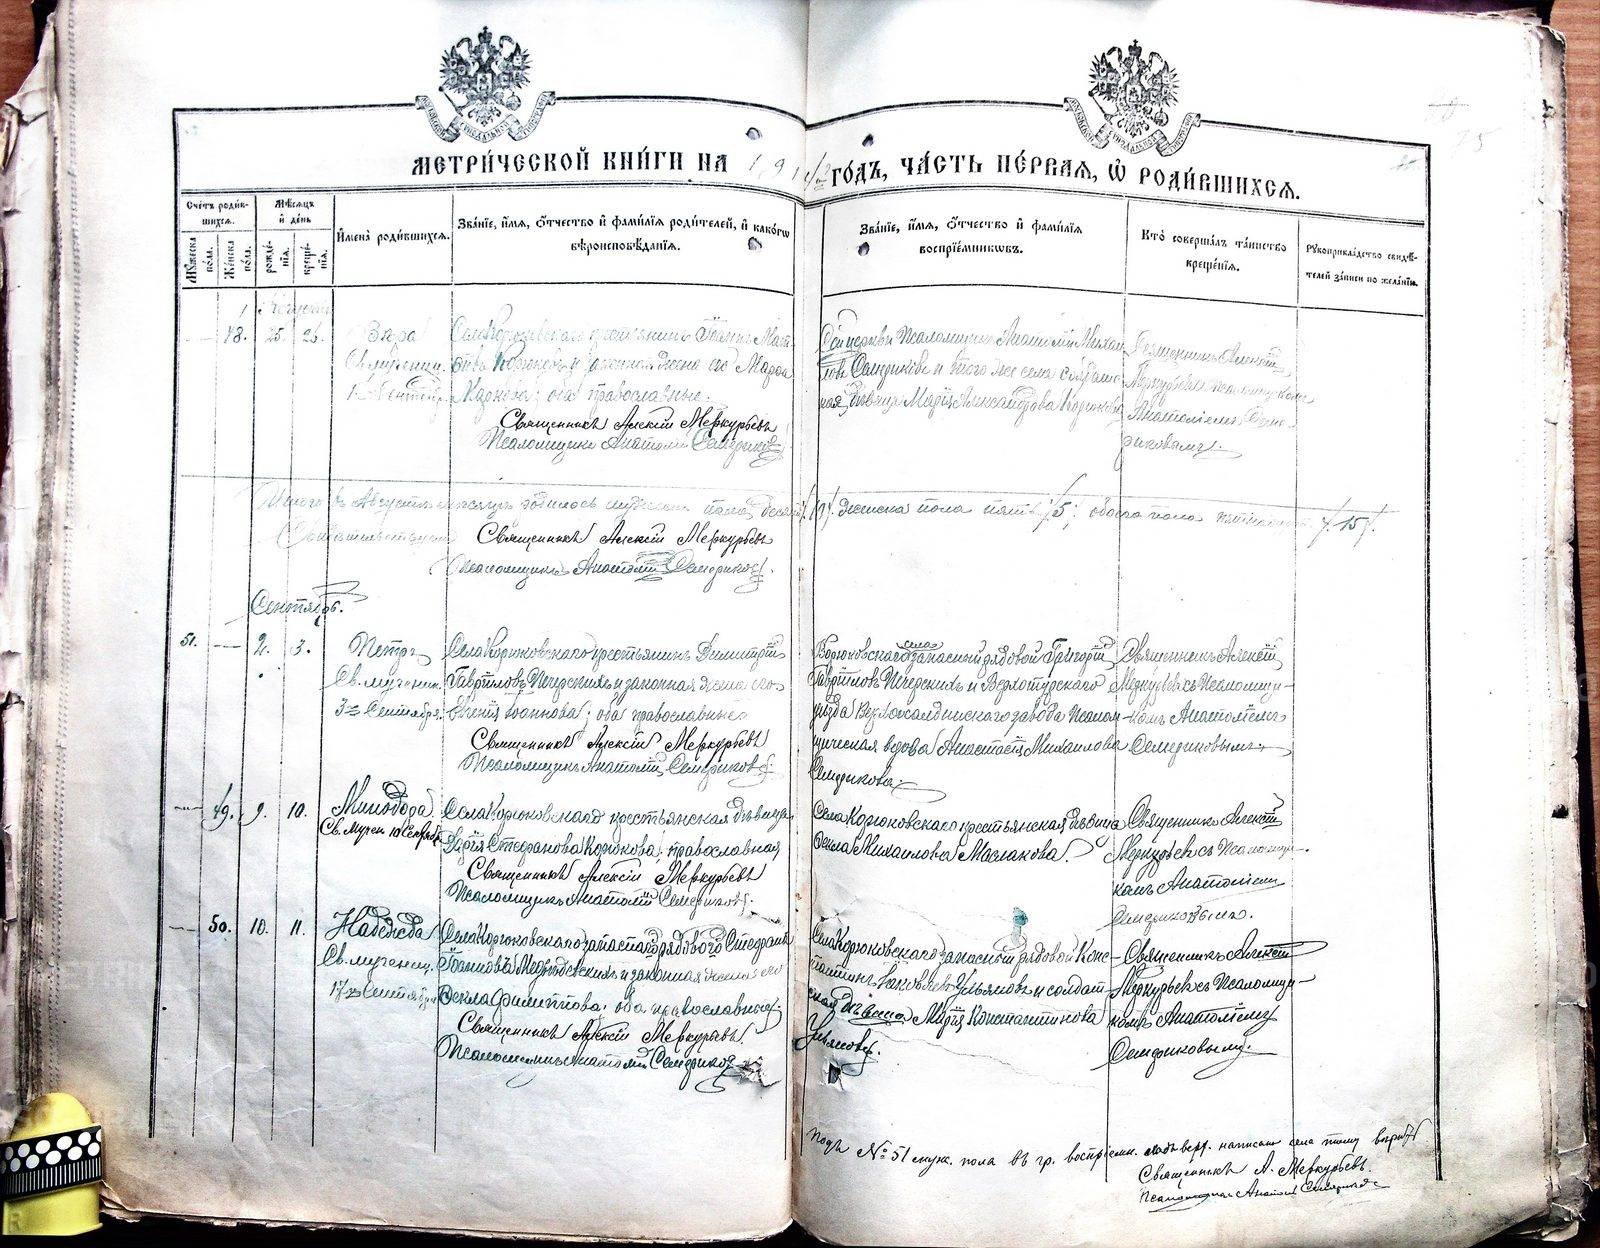 МЕТРИ́ЧЕСКОЙ КНИ́ГИ НА 191 ГО́ДЪ, ЧА́СТЬ ПЕ́РВАЯ, Ѡ РОДИ́ВШИХСѦ.
75
Сче́тъ роди́в-
шихсѧ.
Мѣ́сѧцъ
и҆ де́нь
Мꙋ́жеска
по́ла.
Же́нска
по́ла.
рожде́-
нїѧ.
креще́-
нїѧ.
И҆мена̀ роди́вшихсѧ.
Зва́нїе, и҆́мѧ, ѻ҆́тчество и҆ фами́лїѧ роди́телей, и҆ како́гѡ
вѣроисповѣ́данїѧ.
Зва́нїе, и҆́мѧ, ѻ҆́тчество и҆ фами́лїѧ
воспрїе́мникѡвъ.
Кто̀ соверша́лъ та́инство
креще́нїѧ.
Рꙋкоприкла́дство свидѣ́-
телей за́писи по жела́нїю.
48. 25. 26.
Вѣра
Св. мучениц.
Села Корюковскаго крестьянинъ Іоаннъ Мат
Корюковъ и законная жена его Марѳа
Маркова; оба православные.
Священникъ Алексій Меркурьевъ
Псаломщикъ Анатолій Семериковъ
церкви Псаломщикъ Анатолій Михаи
ловъ Семериковъ и того же села
дѣвица Марія Александрова Корюкова
Священникъ Алексѣй
Меркурьевъ съ псаломщикомъ
Анатоліемъ Семе-
риковымъ.
Итого въ Августѣ мѣсяцѣ родилось мужеска пола десять /10/. женска пола пять /5/; обоего пола пятнадцать /15/.
Священникъ Алексій Меркурьевъ
Псаломщикъ Анатолій Семериковъ.
Сентябрь.
51. — 2. 3.
Петръ
Св. мученик.
3го Сентября.
Села Корюковскаго крестьянинъ Димитрій
Гавріиловъ Печерскихъ и законная жена его
Іоаннова; оба православные
Священникъ Алексій Меркурьевъ
Псаломщикъ Анатолій Семериковъ.
Корюковскаго села запасный рядовой Григорій
Гавріиловъ Печерскихъ и Верхотурскаго
уѣзда завода Псалом
щическая вдова Анастасія Михаилова
Семерикова.
Священникъ Алексѣй
Меркурьевъ съ Псаломщи-
комъ Анатоліемъ
Семериковымъ.
— 49. 9. 10.
Минодора
Св. Мучен 10 Сентяб
Села Корюковскаго крестьянская дѣвица
Дарія Стефанова Корюкова православная
Священникъ Алексій Меркурьевъ
Псаломщикъ Анатолій Семериковъ.
Села Корюковскаго крестьянская дѣвица
Ѳекла Михаилова Маслакова.
Священникъ Алексѣй
Меркурьевъ съ Псаломщи-
комъ Анатоліемъ
Семериковымъ.
— 50. 10. 11.
Надежда
Св. мучениц.
17го Сентября
Села Корюковскаго запаснаго рядового Стефана
Іоаннова и законная жена его
Ѳекла Филиппова; оба православные
Священникъ Алексій Меркурьевъ.
Псаломщикъ Анатолій Семериковъ
Села Корюковскаго запасный рядовой Конс-
тантинъ Іаковлевъ Ульяновъ и солдат-
ская дѣвица Марія Константинова
Ульянова.
Священникъ Алексѣй
Меркурьевъ съ Псаломщи-
комъ Анатоліемъ
Семериковымъ.
Подъ № 51 муж. пола въ гр. воспріемн. надъ верх. написан села тому вѣрить
Священникъ А. Меркурьевъ.
Псаломщикъ Анатолій Семериковъ